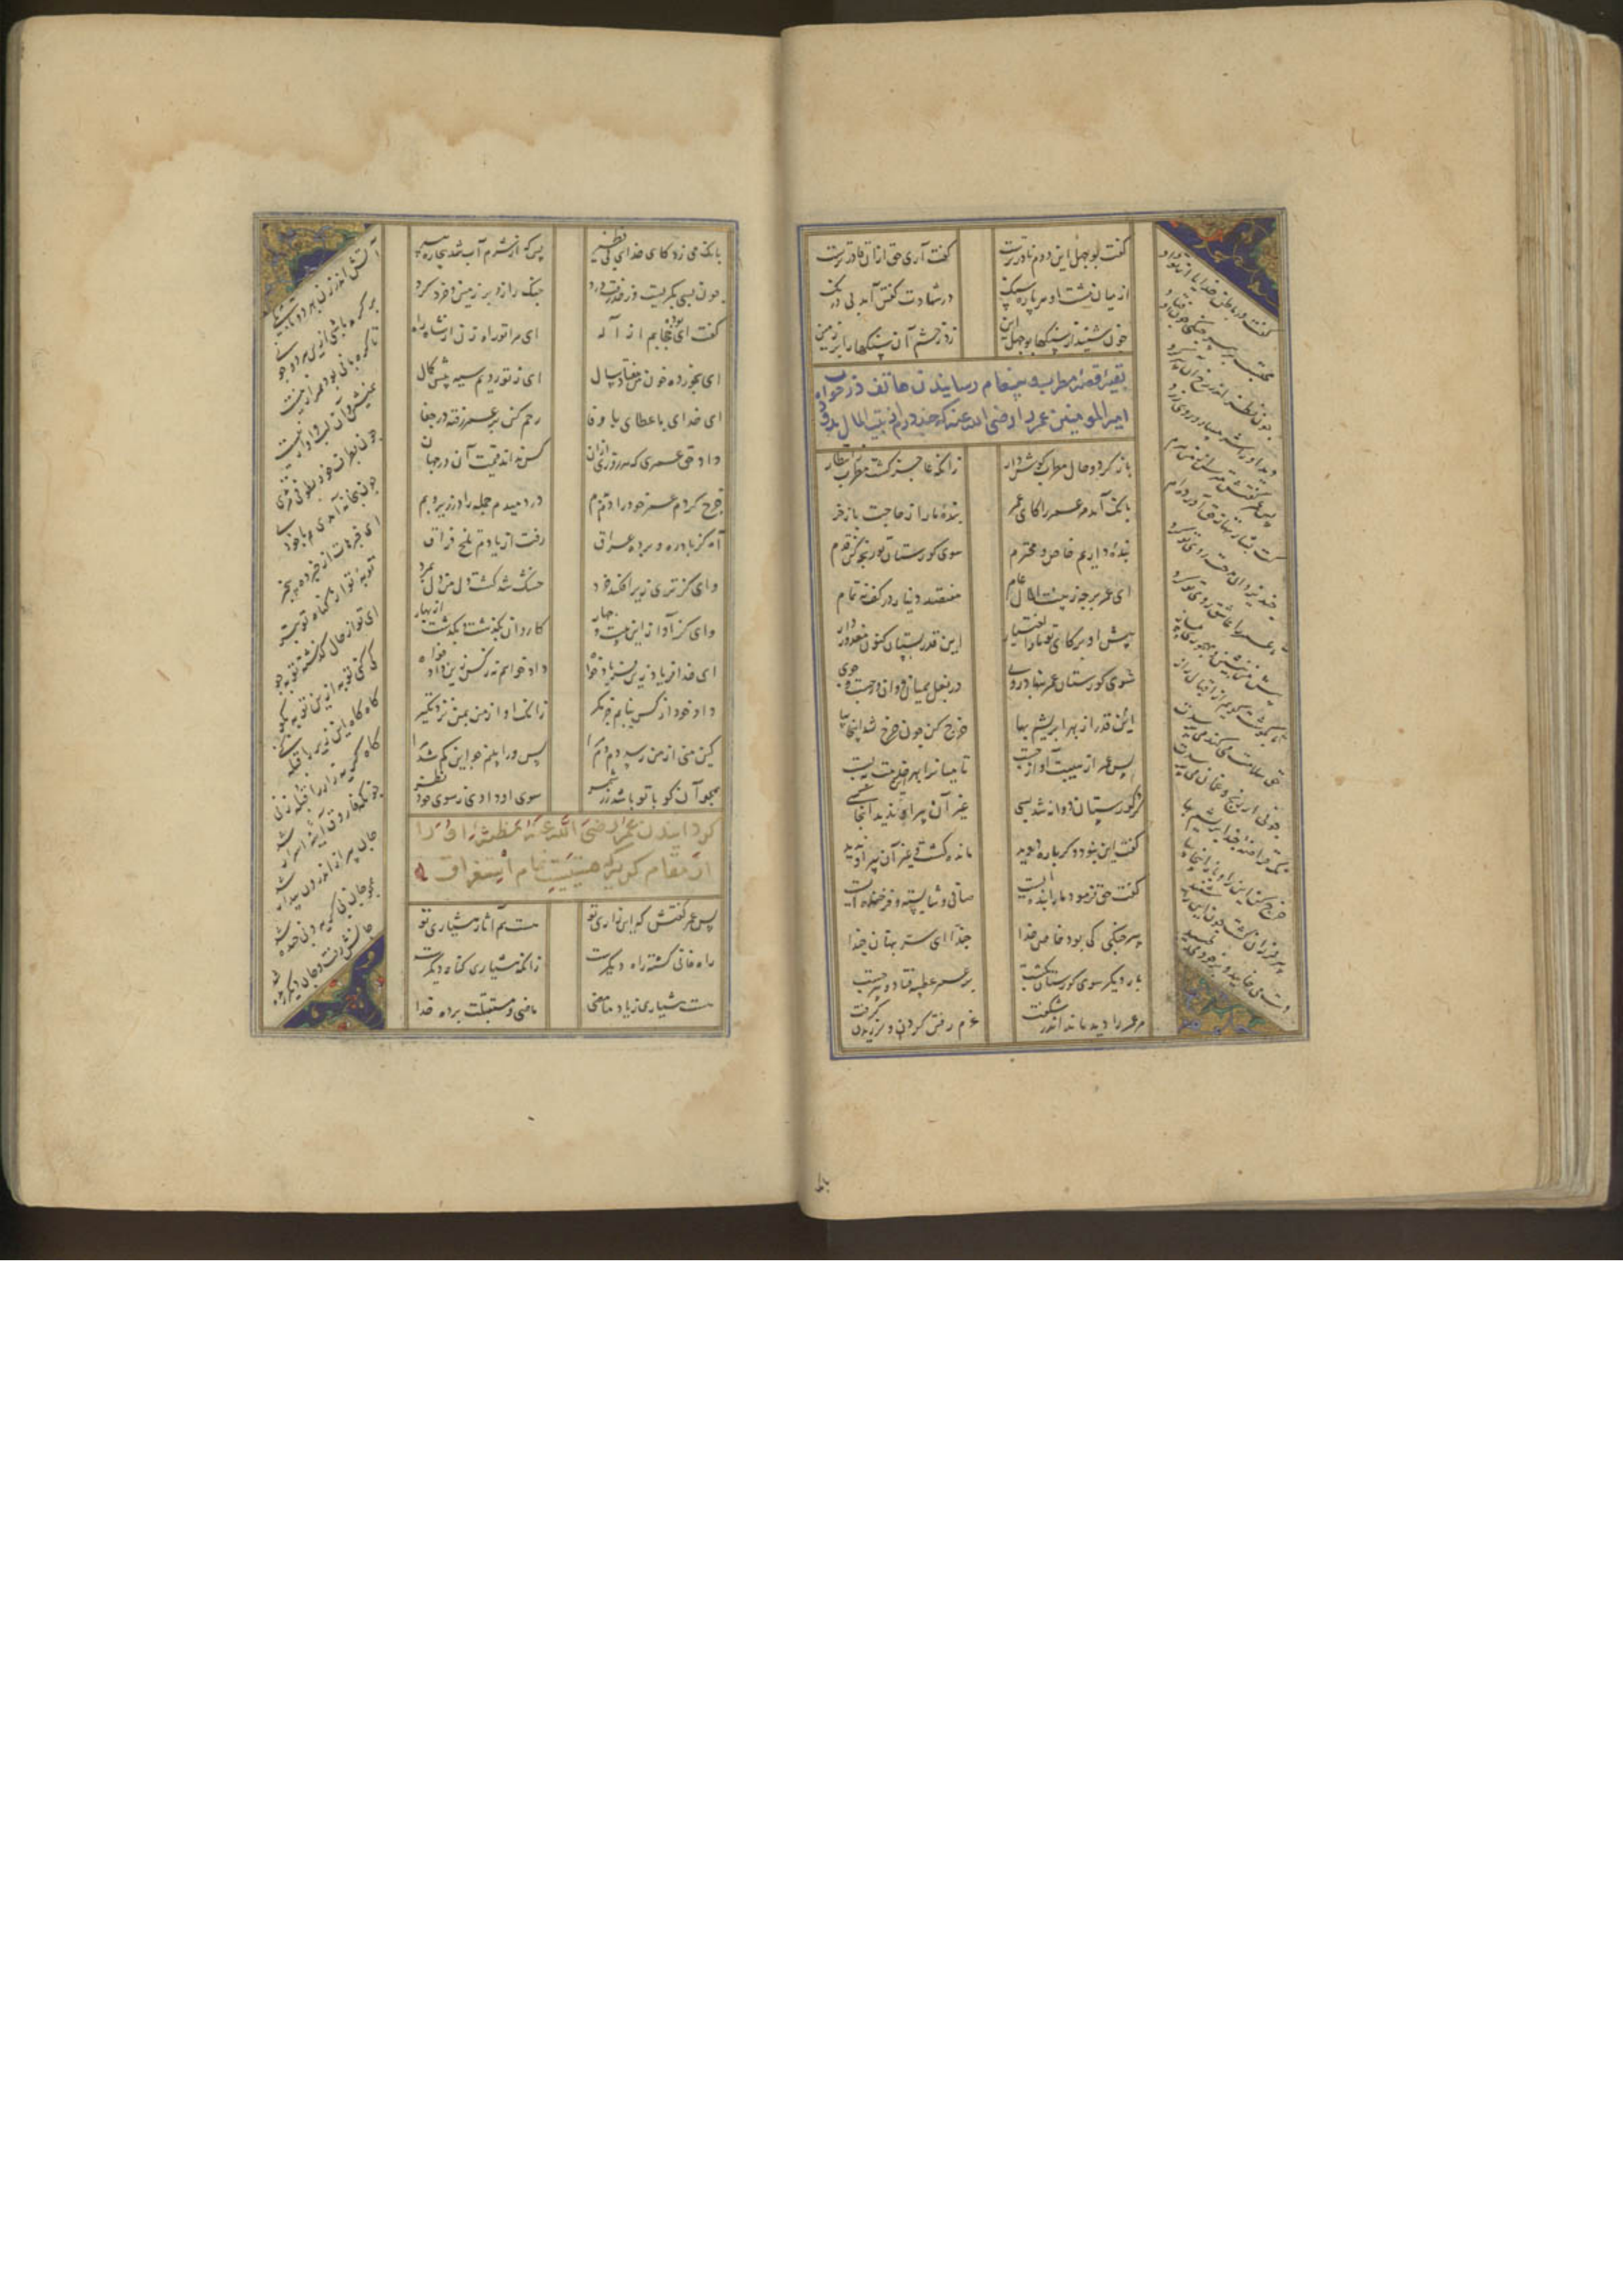 گفت بوجهل این دوم نادرترست گفت آری حق ازان قادرترست
از میان مشت او هر پاره سنگ در شهادت گفتن آمد بی درنگ
چون شنید از سنگها بوجهل این زد ز خشم آن سنگها را بر زمین
بقیهٔ قصهٔ مطرب و پیغام رسانیدن هاتف در خواب
امیرالمومنین عمر را رضی الله عنه که چندین زر از بیت المال بدو ده
باز کرد و حال مطرب گوش دار زانکه عاجز گشت مطرب ز انتظار
بانگ آمد مر عمر را کای عمر بندهٔ ما را ز حاجت باز خر
بندهٔ داریم خاص و محترم سوی کورستان تو رنجه کن قدم
ای عمر برجه ز بیت المال عام هفتصد دینار در کف نه تمام
پیش او بر کای تو ما را اختیار این قدر بستان کنون معذور دار
این قدر از بهر ابریشم بها خرج کن چون خرج شد اینجا بیا
پس عمر از هیبت آواز جست تا میان را بهر این خدمت ببست
سوی کورستان عمر بنهاد روی در بغل همیان دوان در جست و جوی
کرد کورستان دوانه شد بسی غیر آن پیر آنجا ندید آنجا کسی
گفت این نبود دگر باره دوید مانده گشت و غیر آن پیر او ندید
گفت حق فرمود ما را بنده ایست صافی و شایسته و فرخنده ایست
پیر چنگی کی بود خاص خدا حبذا ای سر پنهان حبذا
بار دیگر سوی کورستان بگشت
بر عمر عطسه فتاد و پیر جست
مر عمر را دید ماند اندر شگفت عزم رفتن کرد و لرزیدن گرفت
گفت در باطن خدایا از تو داد
محتسب بر پیر چنگی فتاد
چون نظر اندر رخ آن پیر کرد
دید او را شرمسار و روی زرد
پس عمر گفتش مترس از من مرم
کت بشارتها ز حق آورده ام
چند یزدان مدحت خوی تو کرد
تا عمر را عاشق روی تو کرد
پیش من بنشین و مهجوری مساز
تا بگوشت گویم از اقبال راز
حق سلامت می کند می پرسدت
چونی از رنج و غمان بی حدت
نک قراضهٔ چند ابریشم بها
خرج کن این را و باز اینجا بیا
پیر لرزان گشت چون این را شنید
دست می خایید و بر خود می طپید
بانگ می زد کای خدای بی نظیر بس که از شرم آب شد بیچاره پیر
چون بسی بگریست وز حد رفت درد چنگ را زد بر زمین و خرد کرد
گفت ای بوده حجابم از اله ای مرا تو راه زن از شاه راه
ای بخورده خون من هفتاد سال ای ز تو رویم سیه پیش کمال
ای خدای با عطای با وفا رحم کن بر عمر رفته در جفا
داد حق عمری که هر روزی ازان کس نداند قیمت آن در جهان
خرج کردم عمر خود را دم بدم در دمیدم جمله را در زیر و بم
آه کز یاد ره و پرده عراق رفت از یادم دم تلخ فراق
وای کز تری زیرافکند خرد خشک شد کشت دل من دل بمرد
وای کز آواز این بیست و چهار کاروان بگذشت و بیگه شد نهار
ای خدا فریاد زین فریاد خواه داد خواهم نه ز کس زین داد خواه
داد خود از کس نیابم جز مگر زانک او از من بمن نزدیکتر
کین منی از من رسد دم دم مرا پس ورا بینم چو این کم شد مرا
همچو آن کو با تو باشد زر شمر سوی او داری نه سوی خود نظر
گردانیدن عمر رضی الله عنه نظر او را
از مقام گریه که هستیست بمقام استغراق
پس عمر گفتش که این زاری تو هست هم آثار هشیاری تو
راه فانی گشته راه دیگرست زانکه هشیاری گناه دیگرست
هست هشیاری ز یاد ما مضی ماضی و مستقبلت پرده خدا
آتش اندر زن بهر دو تا بکی
پر گره باشی ازین هر دو چو نی
تا گره با نی بود همراز نیست
همنشین آن لب و آواز نیست
چون بطوف خود بطوفی مرتدی
چون بخانه آمدی هم با خودی
ای خبرهات از خبرده بی خبر
توبهٔ تو از گناه تو بتر
ای تو از حال گذشته توبه جو
کی کنی توبه ازین توبه بگو
گاه گریه زار را قبله زنی
چونکه فاروق آینهٔ اسرار شد
جان پیر از اندرون بیدار شد
همچو جان بی گریه و بی خنده شد
جانش رفت و جان دیگر زنده شد